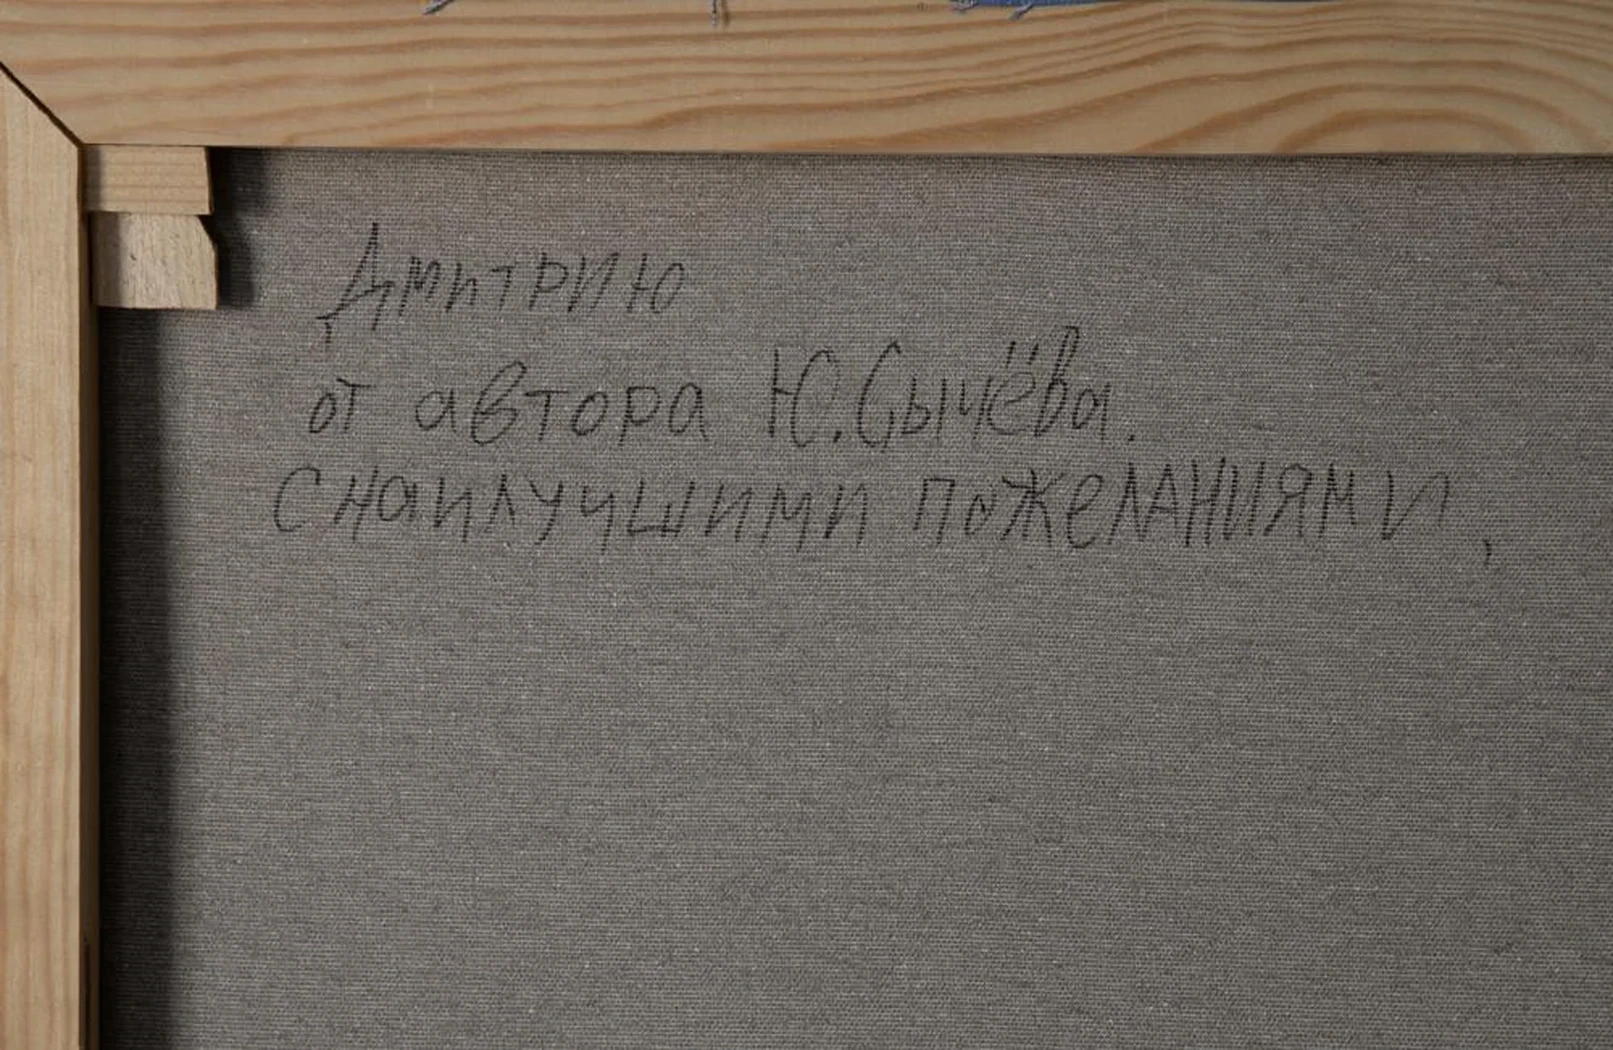 Дмитрию
от автора Ю.Сычёва.
С наилучшими пожеланиями,